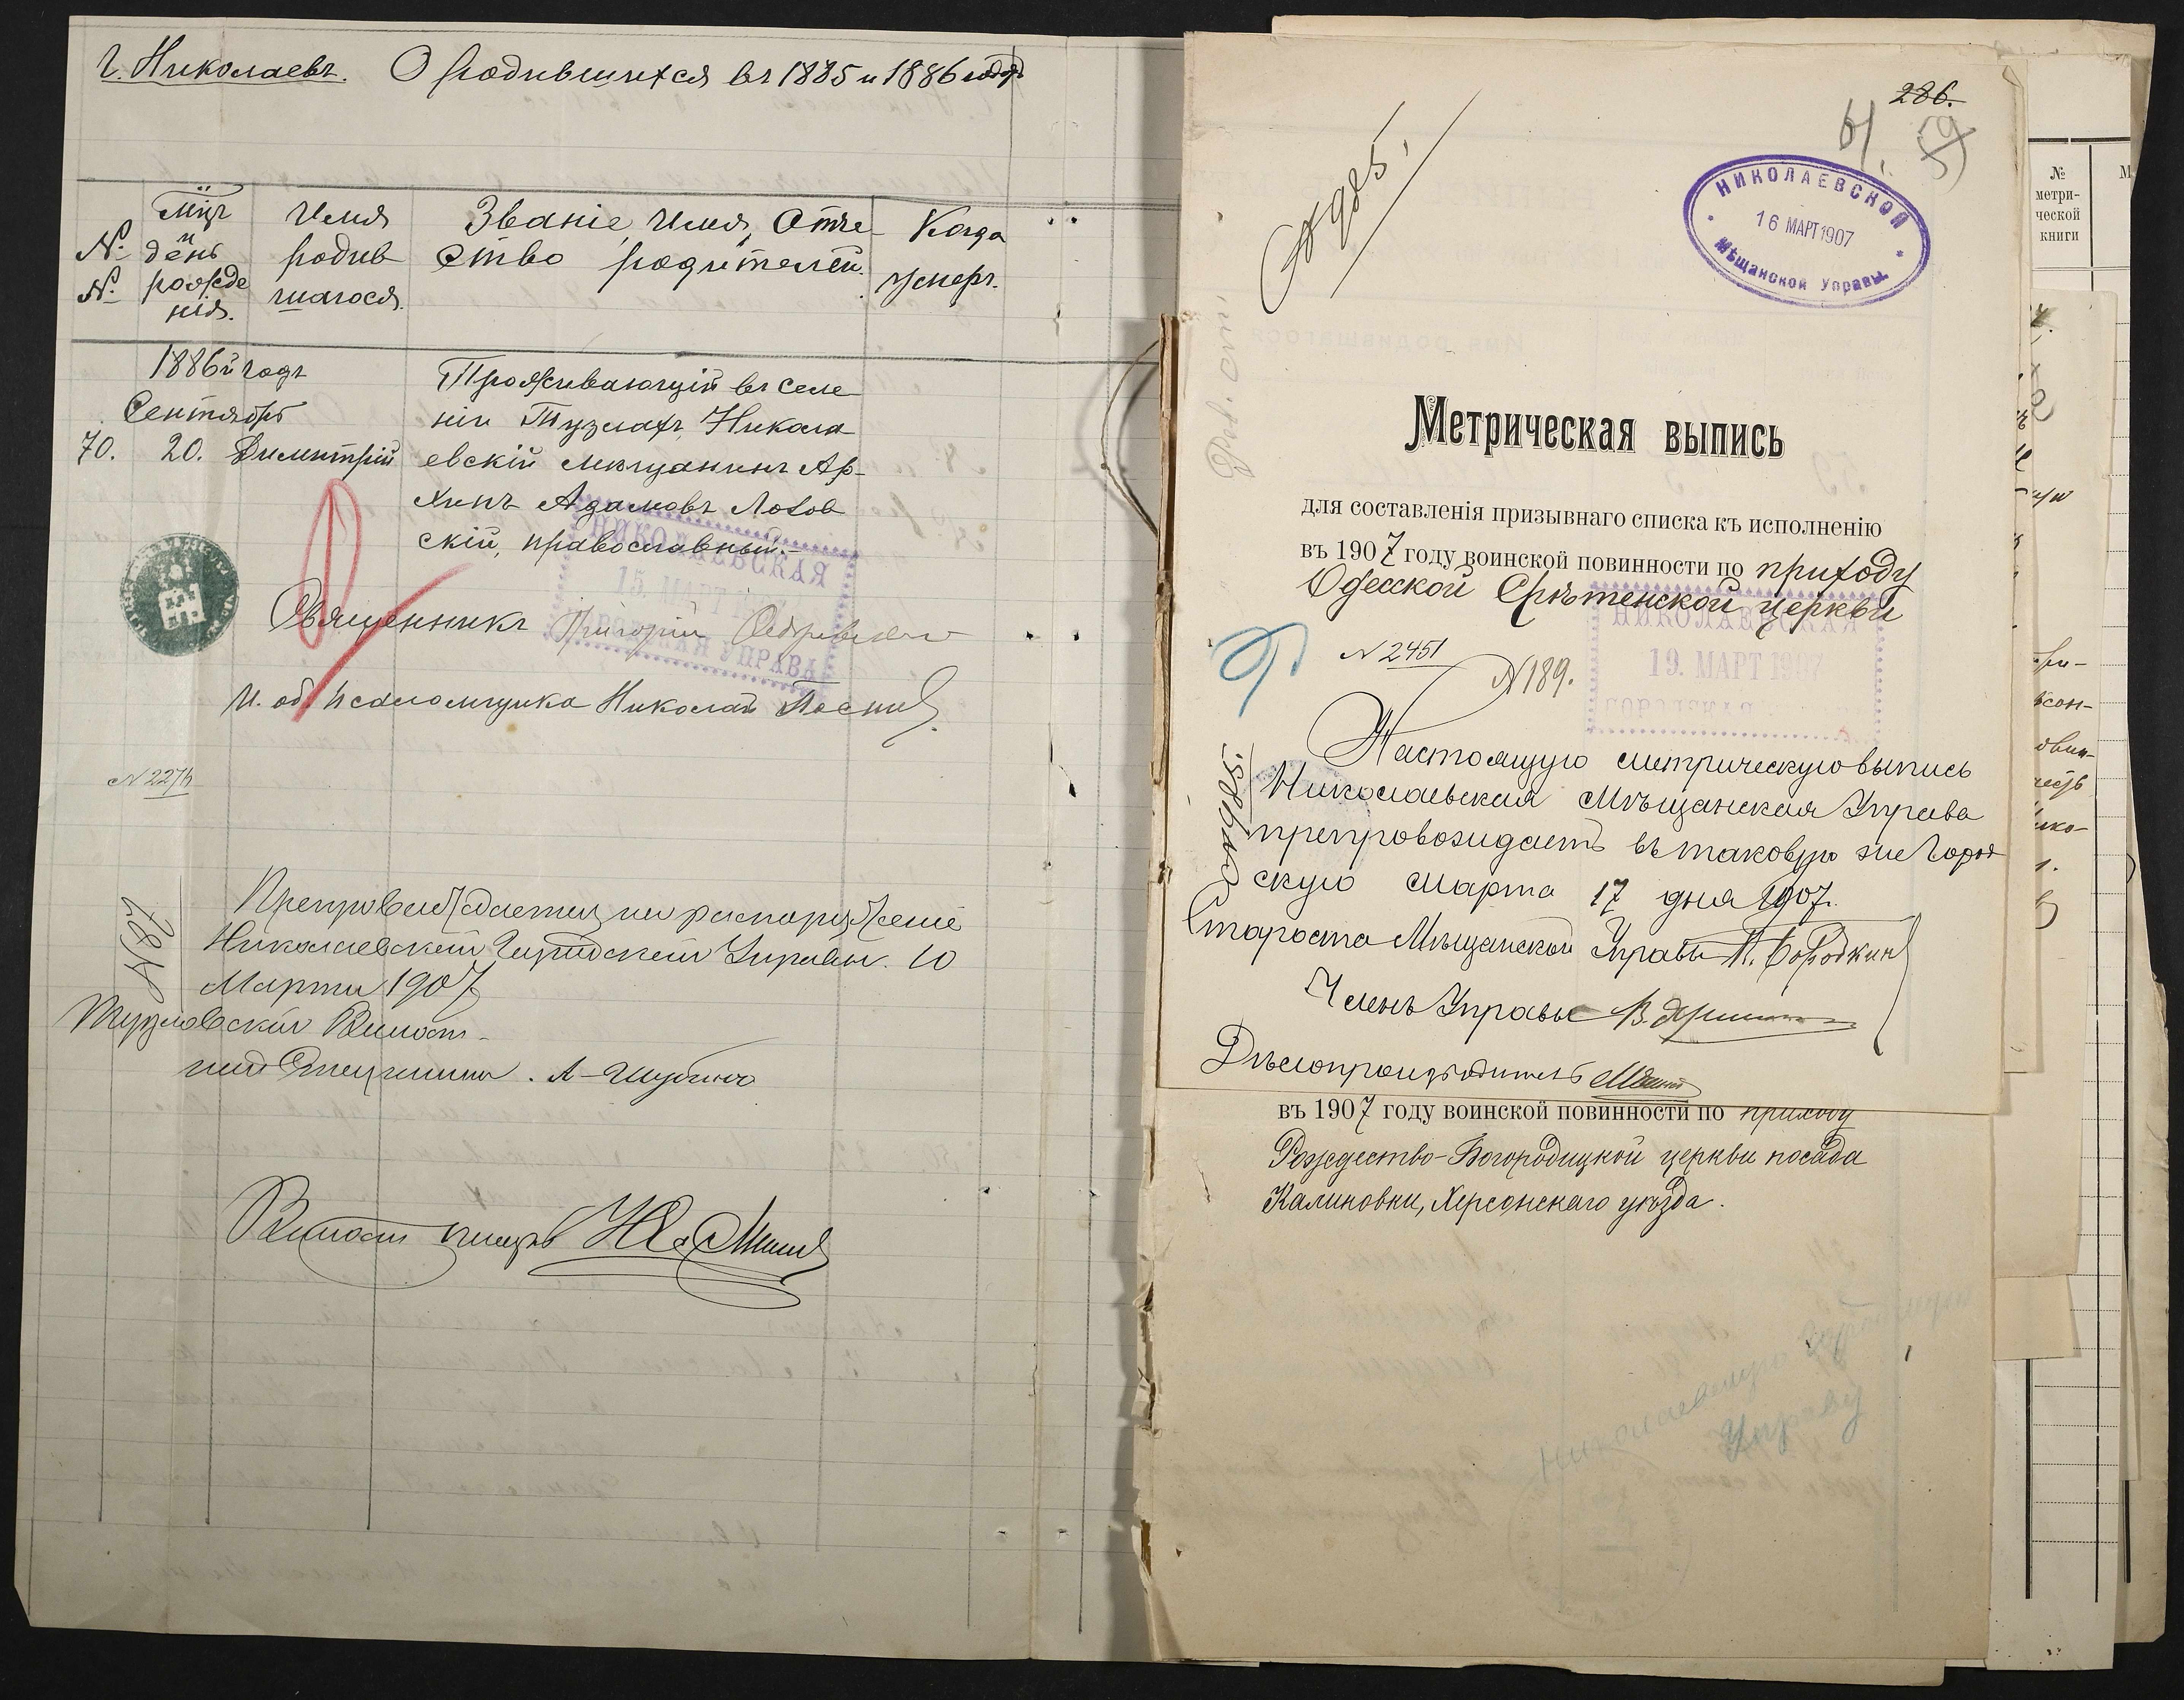 г. Николаевъ. О родившихся въ 1885 и 1886 годахъ
№ №
Мцъ и день рожде
нія.
Имя
родив
шагося.
Званіе, Имя, Отче
ство родителей.
Когда
умеръ.
1886й годъ
Сентябрь
70. 20. Димитрій
Проживающій въ селе
ніи Тузлахъ, Никола
евскій мѣщанинъ Ар-
хипъ Адамовъ Лозов
скій, православный.-
НИКОЛАЕВСКАЯ
15. МАРТ
УПРАВА
Священникъ Григорій
И. об. псаломщика Николай
N 2274
N187
Препровождается на распоряженіе
Николаевской Городской Управы. 10
Марта 1907
Тузловскій Волост-
ной Старшина. А
Волост писарь
286.
61.
59
НИКОЛАЕВСКОЙ
16 МАРТ 1907
Мѣщанской Управы
Метрическая выпись
для составленія призывнаго списка къ исполненію
въ 1907 году воинской повинности по приходу
Одесской Срѣтенской церкви
N 2451
N189.
НИКОЛАЕВСКАЯ
19. МАРТ 1907
ГОРОДСКАЯ
Настоящую метрическую выпись
Николаевская Мѣщанская Управа
препровождаетъ въ таковую же Город
скую Марта 17 дня 1907.
Староста Мѣщанской Управы П. Бородкинъ
Членъ Управы В.
Дѣлопроизводитель
въ 1907 году воинской повинности по приходу
Рождество-Богородицкой церкви посада
Калиновки, Херсонскаго уѣзда.
Николаевскую Городскую
Управу
№
метри-
ческой
книги
М